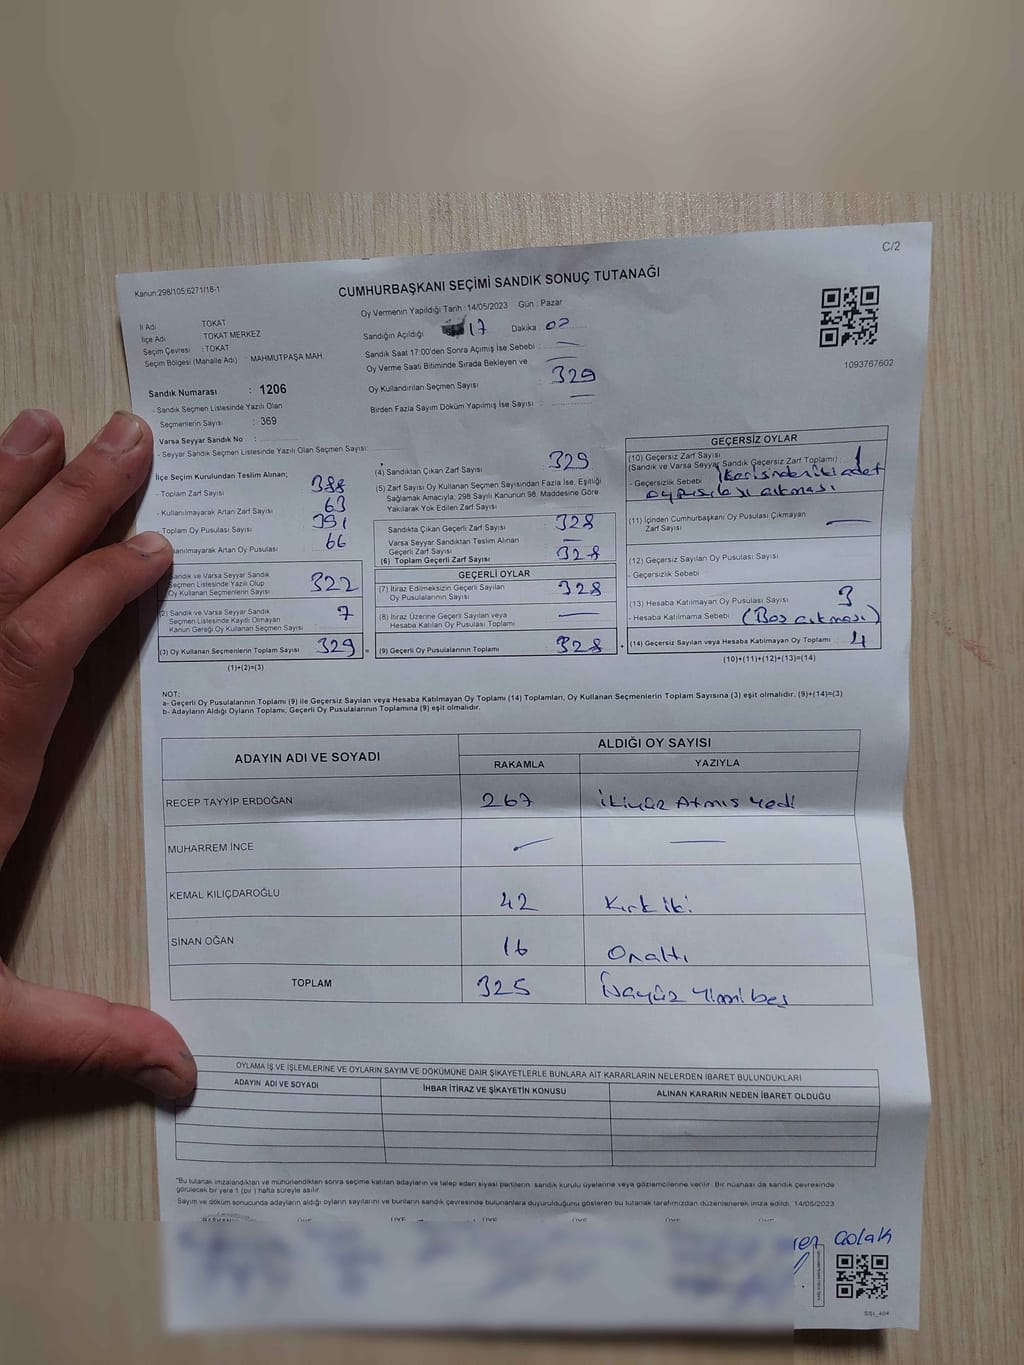 C/2
Kanun:298/105;6271/18-1
CUMHURBAŞKANI SEÇİMİ SANDIK SONUÇ TUTANAĞI
İl Adı TOKAT
İlçe Adı TOKAT MERKEZ
Seçim Çevresi : TOKAT
Seçim Bölgesi (Mahalle Adı) : MAHMUTPAŞA MAH.
Sandık Numarası : 1206
- Sandık Seçmen Listesinde Yazılı Olan
Seçmenlerin Sayısı : 369
Varsa Seyyar Sandık No :
- Seyyar Sandık Seçmen Listesinde Yazılı Olan Seçmen Sayısı:
Oy Vermenin Yapıldığı Tarih : 14/05/2023 Gün : Pazar
Sandığın Açıldığı 17 Dakika 02
Sandık Saat 17:00'den Sonra Açımış İse Sebebi : —
Oy Verme Saati Bitiminde Sırada Bekleyen ve —
Oy Kullandırılan Seçmen Sayısı 329
Birden Fazla Sayım Döküm Yapılmış İse Sayısı : —
1093767602
İlçe Seçim Kurulundan Teslim Alınan;
- Toplam Zarf Sayısı 388
- Kullanılmayarak Artan Zarf Sayısı 63
- Toplam Oy Pusulası Sayısı 391
anılmayarak Artan Oy Pusulası 66
Sandık ve Varsa Seyyar Sandık
Seçmen Listesinde Yazılı Olup
Oy Kullanan Seçmenlerin Sayısı 322
(2) Sandık ve Varsa Seyyar Sandık
Seçmen Listesinde Kayıtlı Olmayan
Kanun Gereği Oy Kullanan Seçmen Sayısı 7
(3) Oy Kullanan Seçmenlerin Toplam Sayısı 329 =
(1)+(2)=(3)
(4) Sandıktan Çıkan Zarf Sayısı 329
(5) Zarf Sayısı Oy Kullanan Seçmen Sayısından Fazla İse, Eşitliği
Sağlamak Amacıyla; 298 Sayılı Kanunun 98. Maddesine Göre
Yakılarak Yok Edilen Zarf Sayısı
Sandıkta Çıkan Geçerli Zarf Sayısı 328
Varsa Seyyar Sandıktan Teslim Alınan
Geçerli Zarf Sayısı —
(6) Toplam Geçerli Zarf Sayısı 328
GEÇERLİ OYLAR
(7) İtiraz Edilmeksizin Geçerli Sayılan
Oy Pusulalarının Sayısı 328
(8) İtiraz Üzerine Geçerli Sayılan veya
Hesaba Katılan Oy Pusulası Toplamı —
(9) Geçerli Oy Pusulalarının Toplamı 328
GEÇERSİZ OYLAR
(10) Geçersiz Zarf Sayısı 1
(Sandık ve Varsa Seyyar Sandık Geçersiz Zarf Toplamı)
- Geçersizlik Sebebi (İçerisinden iki adet
oy pusulası çıkması
(11) İçinden Cumhurbaşkanı Oy Pusulası Çıkmayan
Zarf Sayısı —
(12) Geçersiz Sayılan Oy Pusulası Sayısı
- Geçersizlik Sebebi
(13) Hesaba Katılmayan Oy Pusulası Sayısı 3
- Hesaba Katılmama Sebebi (Boş çıkması)
(14) Geçersiz Sayılan veya Hesaba Katılmayan Oy Toplamı 4
(10)+(11)+(12)+(13)=(14)
NOT:
a- Geçerli Oy Pusulalarının Toplamı (9) ile Geçersiz Sayılan veya Hesaba Katılmayan Oy Toplamı (14) Toplamları, Oy Kullanan Seçmenlerin Toplam Sayısına (3) eşit olmalıdır. (9)+(14)=(3)
b- Adayların Aldığı Oyların Toplamı, Geçerli Oy Pusulalarının Toplamına (9) eşit olmalıdır.
ADAYIN ADI VE SOYADI ALDIĞI OY SAYISI
RAKAMLA YAZIYLA
RECEP TAYYİP ERDOĞAN 267 İkiyüz Atmış Yedi
MUHARREM İNCE — —
KEMAL KILIÇDAROĞLU 42 Kırk iki
SİNAN OĞAN 16 Onaltı
TOPLAM 325 Üçyüz Yirmibeş
OYLAMA İŞ VE İŞLEMLERİNE VE OYLARIN SAYIM VE DÖKÜMÜNE DAİR ŞİKAYETLERLE BUNLARA AİT KARARLARIN NELERDEN İBARET BULUNDUKLARI
ADAYIN ADI VE SOYADI İHBAR İTİRAZ VE ŞİKAYETİN KONUSU ALINAN KARARIN NEDEN İBARET OLDUĞU
"Bu tutanak imzalandıktan ve mühürlendikten sonra seçime katılan adayların ve talep eden siyasi partilerin sandık kurulu üyelerine veya gözlemcilerine verilir. Bir nüshası da sandık çevresinde
görülecek bir yere 1 (bir) hafta süreyle asılır.
Sayım ve döküm sonucunda adayların aldığı oyların sayılarını ve bunların sandık çevresinde bulunanlara duyurulduğunu gösteren bu tutanak tarafımızdan düzenlenerek imza edildi. 14/05/2023
BAŞKAN ÜYE ÜYE ÜYE ÜYE ÜYE ÜYE
Çolak